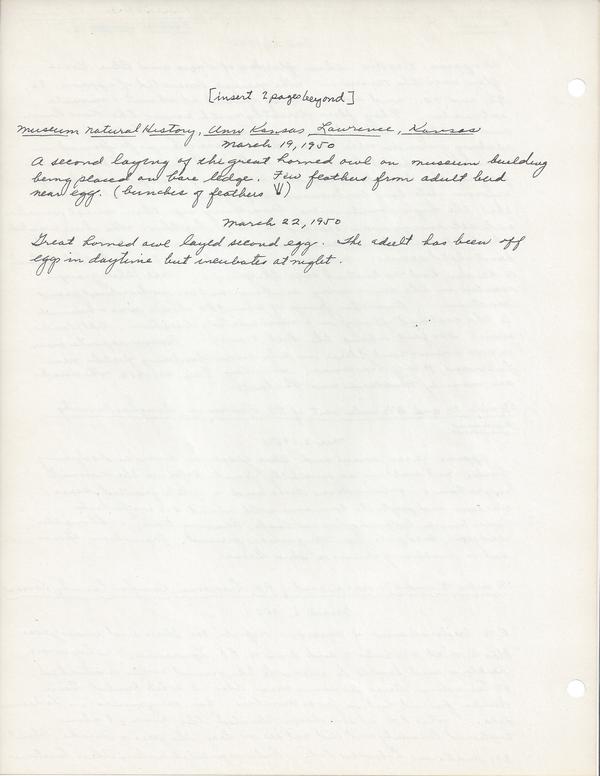 [insert 2 pages beyond]
Museum Natural History, Univ Kansas, Lawrence, Kansas
March 19, 1950
A second laying of the great horned owl on museum building
being placed on bare ledge. Few feathers from adult bird
near egg. (bunches of feathers)
March 22, 1950
Great horned owl layed second egg. The adult has been off
eggs in daytime but incubates at night.